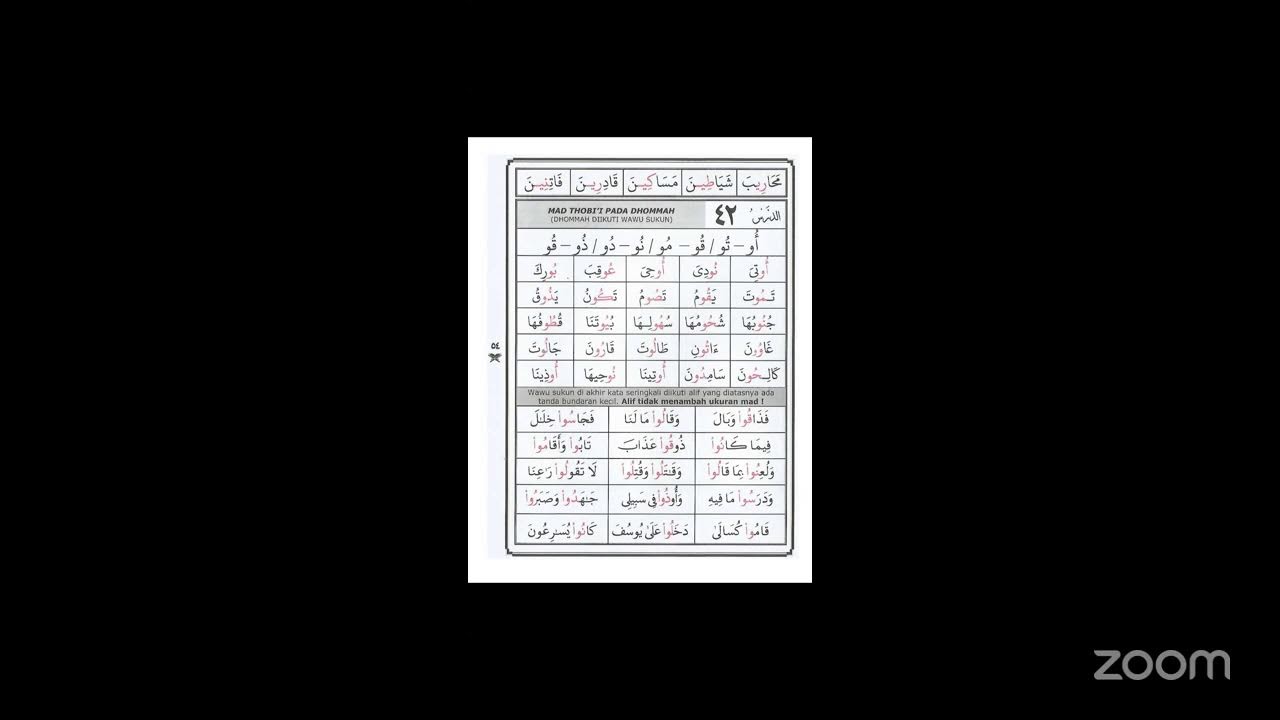 مَحَارِيبَ شَيَاطِينَ مَسَاكِينَ قَادِرِينَ فَاتِنِينَ
الدَّرْسُ ٤٢ MAD THOBI'I PADA DHOMMAH
(DHOMMAH DIIKUTI WAWU SUKUN)
أُو – تُو / قُو – مُو / نُو – دُو / ذُو – قُو
أُوتِىَ نُودِىَ أُوحِىَ عُوقِبَ بُورِكَ
تَمُوتَ يَقُومُ تَصُومُ تَكُونُ يَذُوقُ
جُنُوبُهَا شُحُومُهَا سُهُولِهَا بُيُوتَنَا قُطُوفُهَا
غَاوُونَ ءَاتُونِ طَالُوتَ قَارُونَ جَالُوتَ
٥٤
كَالِحُونَ سَامِدُونَ أُوتِينَا نُوحِيهَا أُوذِينَا
Wawu sukun di akhir kata seringkali diikuti alif yang diatasnya ada
tanda bundaran kecil. Alif tidak menambah ukuran mad !
فَذَاقُوا۟ وَبَالَ وَقَالُوا۟ مَا لَنَا فَجَاسُوا۟ خِلَـٰلَ
فِيمَا كَانُوا۟ ذُوقُوا۟ عَذَابَ تَابُوا۟ وَأَقَامُوا۟
وَلُعِنُوا۟ بِمَا قَالُوا۟ وَقَـٰتَلُوا۟ وَقُتِلُوا۟ لَا تَقُولُوا۟ رَٰعِنَا
وَدَرَسُوا۟ مَا فِيهِ وَأُوذُوا۟ فِي سَبِيلِي جَـٰهَدُوا۟ وَصَبَرُوا۟
قَامُوا۟ كُسَالَىٰ دَخَلُوا۟ عَلَىٰ يُوسُفَ كَانُوا۟ يُسَـٰرِعُونَ
zoom